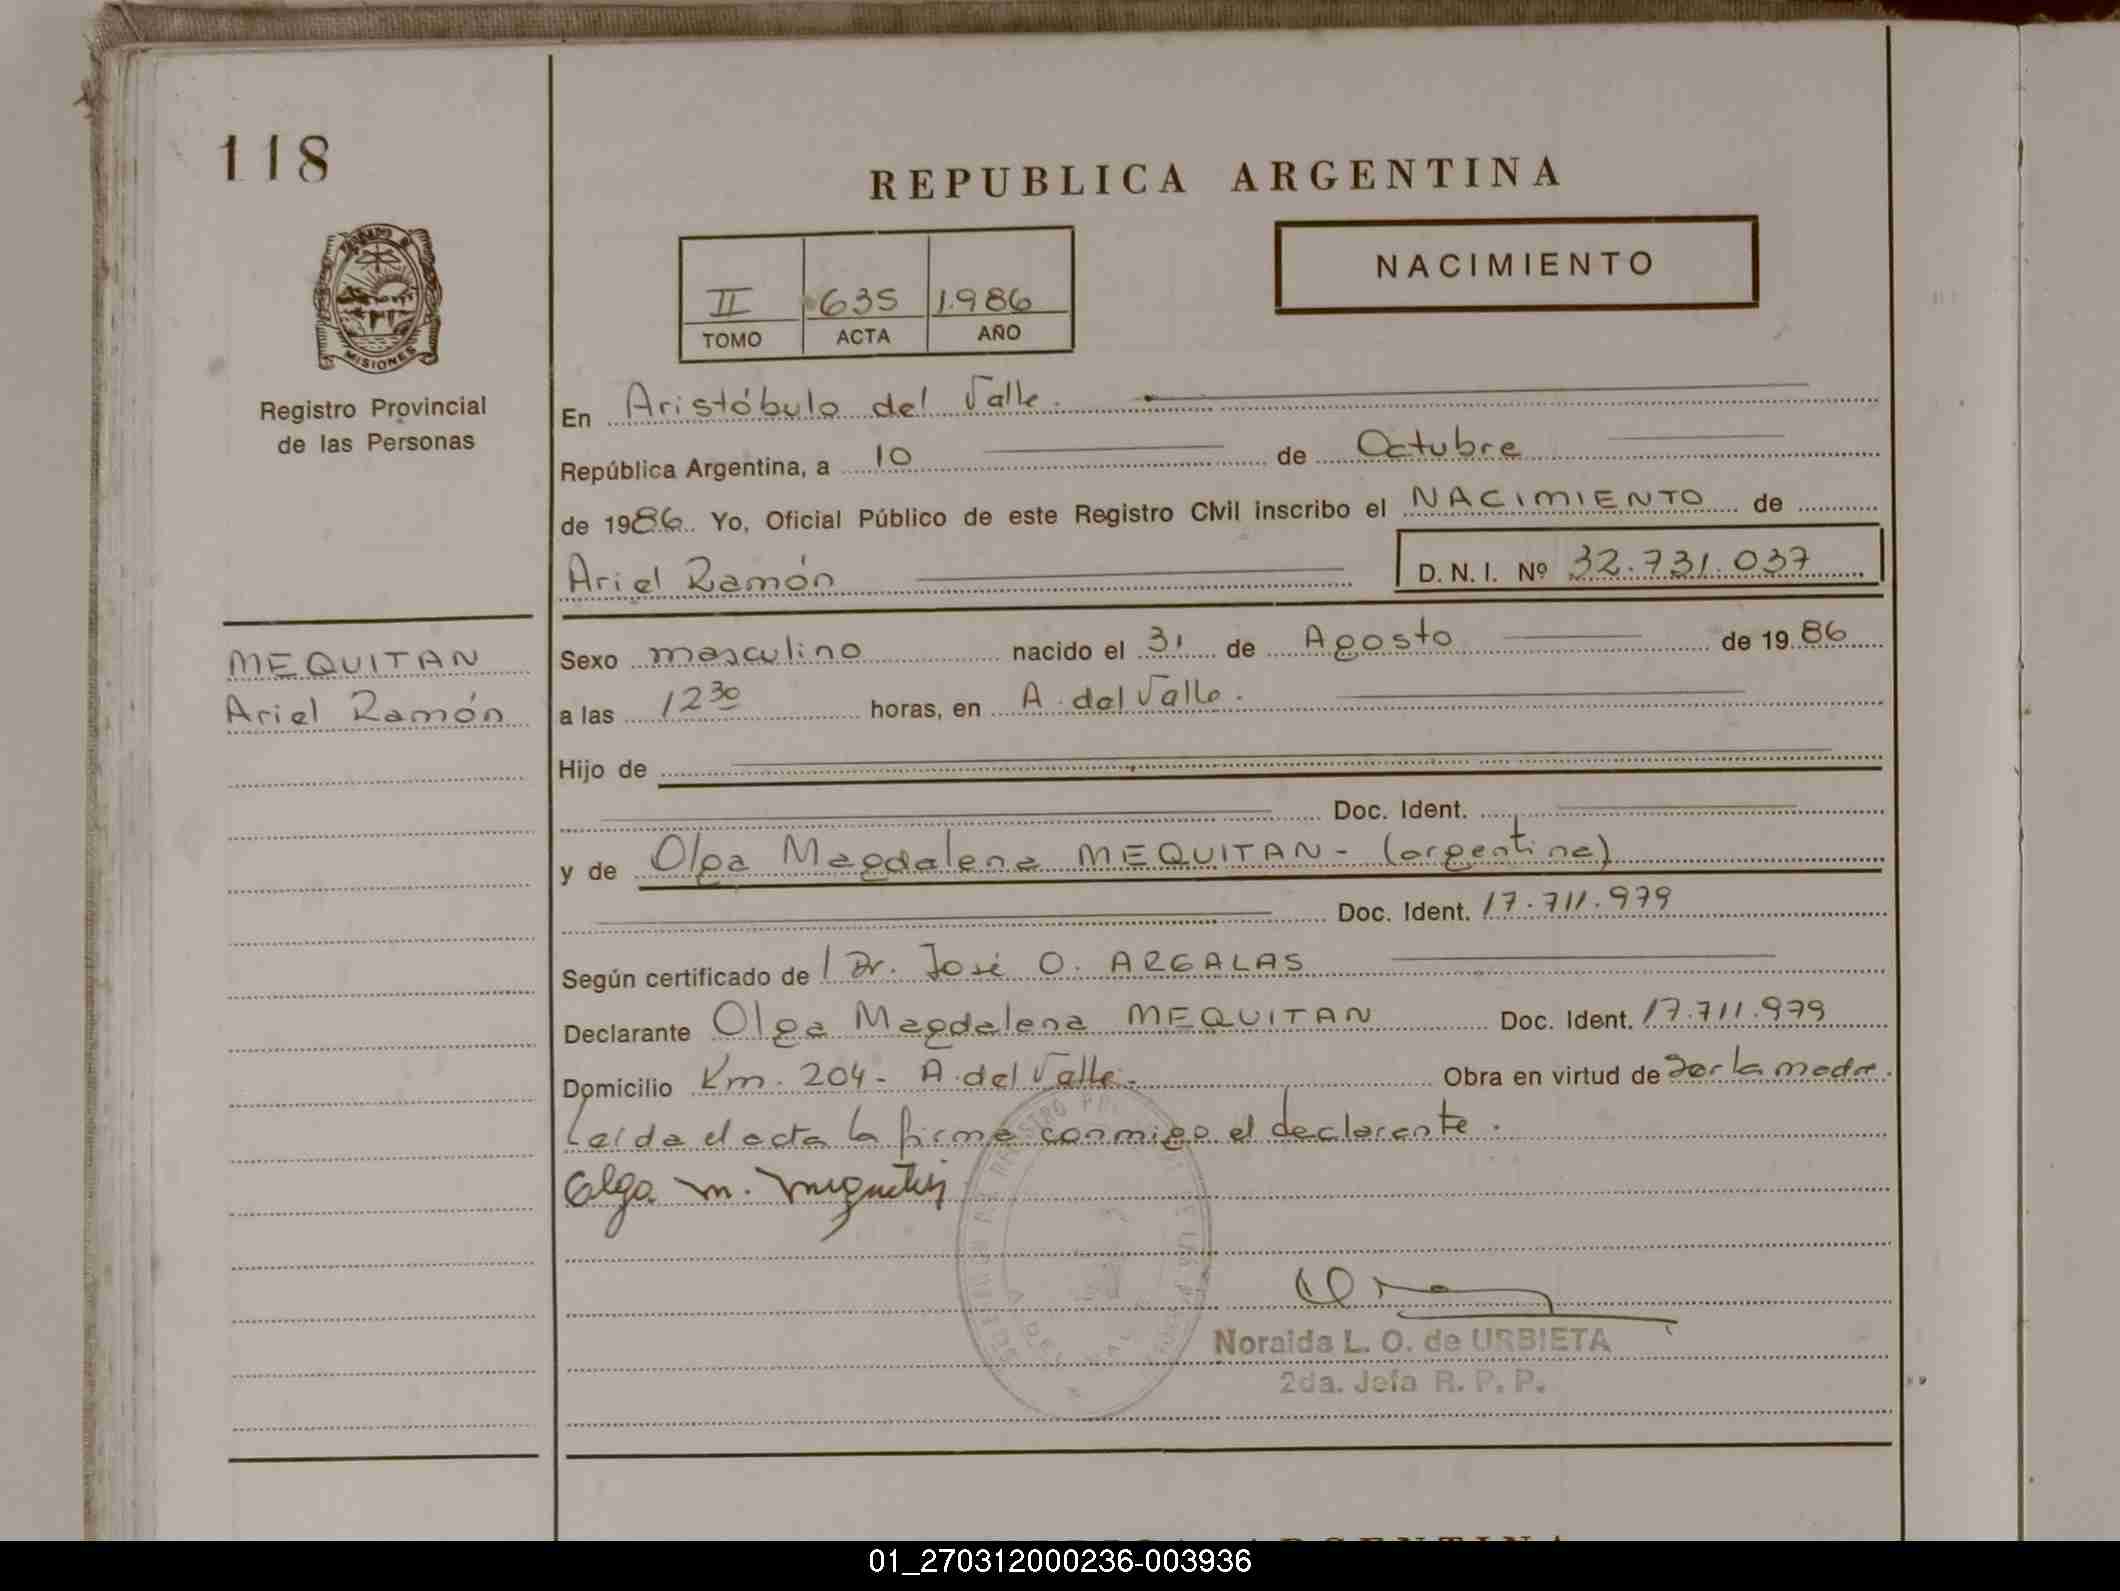 118
REPUBLICA ARGENTINA
NACIMIENTO
II 635 1.986
TOMO ACTA AÑO
MISIONES
Registro Provincial
de las Personas
MEQUITAN
Ariel Ramón
En Aristóbulo del Valle.
República Argentina, a 10 de Octubre
de 1986. Yo, Oficial Público de este Registro Civil inscribo el NACIMIENTO de
Ariel Ramón D. N. I. Nº 32.731.037
Sexo masculino nacido el 31 de Agosto de 19 86
a las 12 30 horas, en A. del Valle.
Hijo de
Doc. Ident.
y de Olga Magdalena MEQUITAN - (argentina)
Doc. Ident. 17.711.979
Según certificado de Dr. José O. ARGALAS
Declarante Olga Magdalena MEQUITAN Doc. Ident. 17.711.979
Domicilio Km. 204 - A. del Valle - Obra en virtud de ser la madre.
Leída el acta la firma conmigo el declarante.
Olga M.
Noraida L. O. de URBIETA
2da. Jefa R. P. P.
01_270312000236-003936